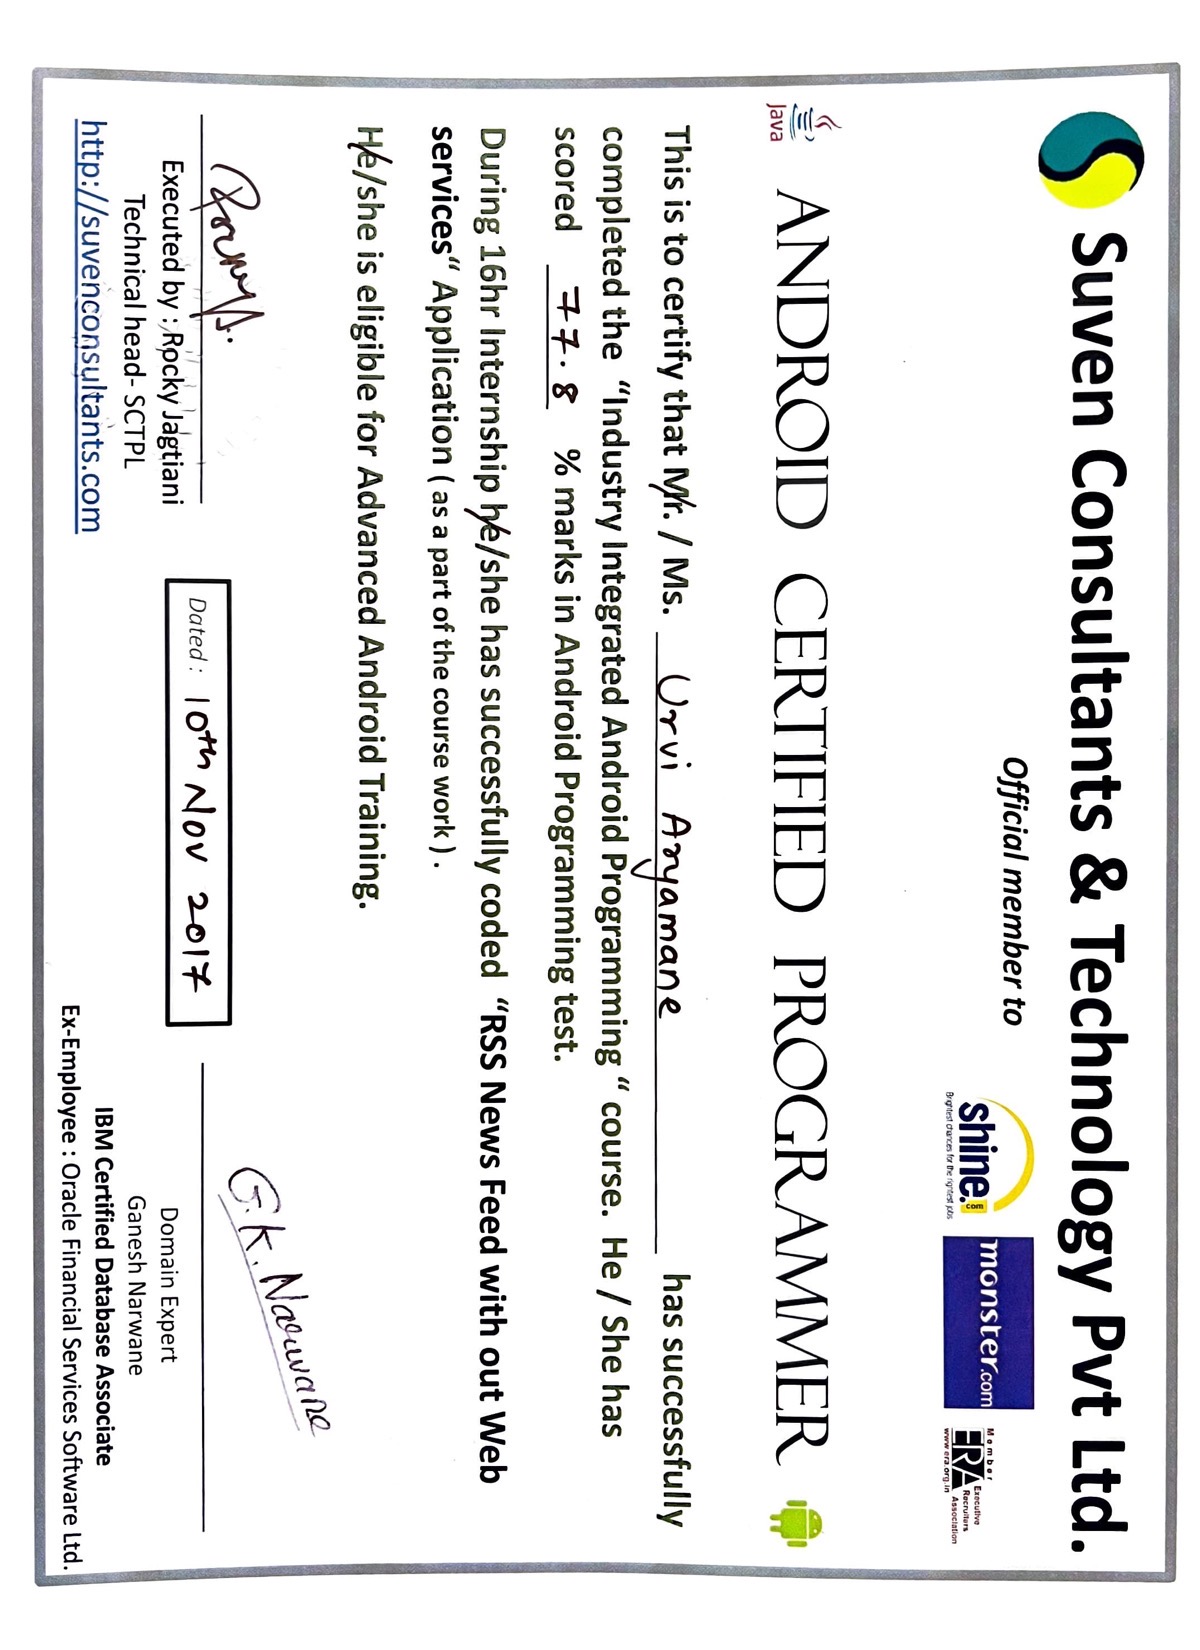 Suven Consultants & Technology Pvt Ltd.
Official member to
shine.com
Brightest chances for the rightest jobs
monster.com
Member
ERA Executive Recruiters Association
www.era.org.in
Java
ANDROID CERTIFIED PROGRAMMER
This is to certify that Mr. / Ms. Urvi Aryamane has successfully
completed the “Industry Integrated Android Programming “ course. He / She has
scored 77.8 % marks in Android Programming test.
During 16hr Internship he/she has successfully coded “RSS News Feed with out Web
services“ Application ( as a part of the course work ) .
He/she is eligible for Advanced Android Training.
G.K. Narwane
Dated : 10th Nov 2017
Executed by : Rocky Jagtiani
Technical head- SCTPL
http://suvenconsultants.com
Domain Expert
Ganesh Narwane
IBM Certified Database Associate
Ex-Employee : Oracle Financial Services Software Ltd.